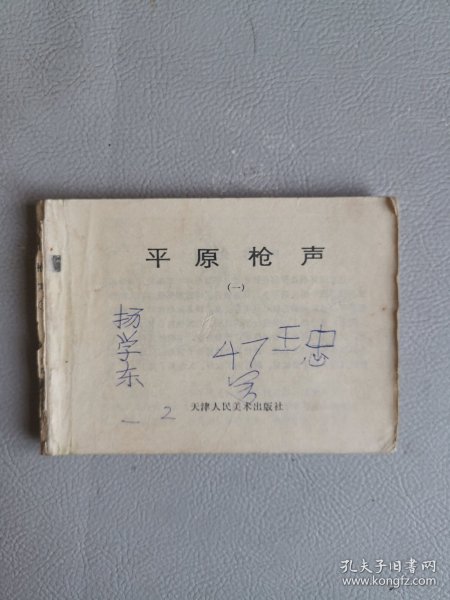 平原枪声
(一)
扬学东
47 王忠
号
一 2
天津人民美术出版社
孔夫子旧书网
www.kongfz.com